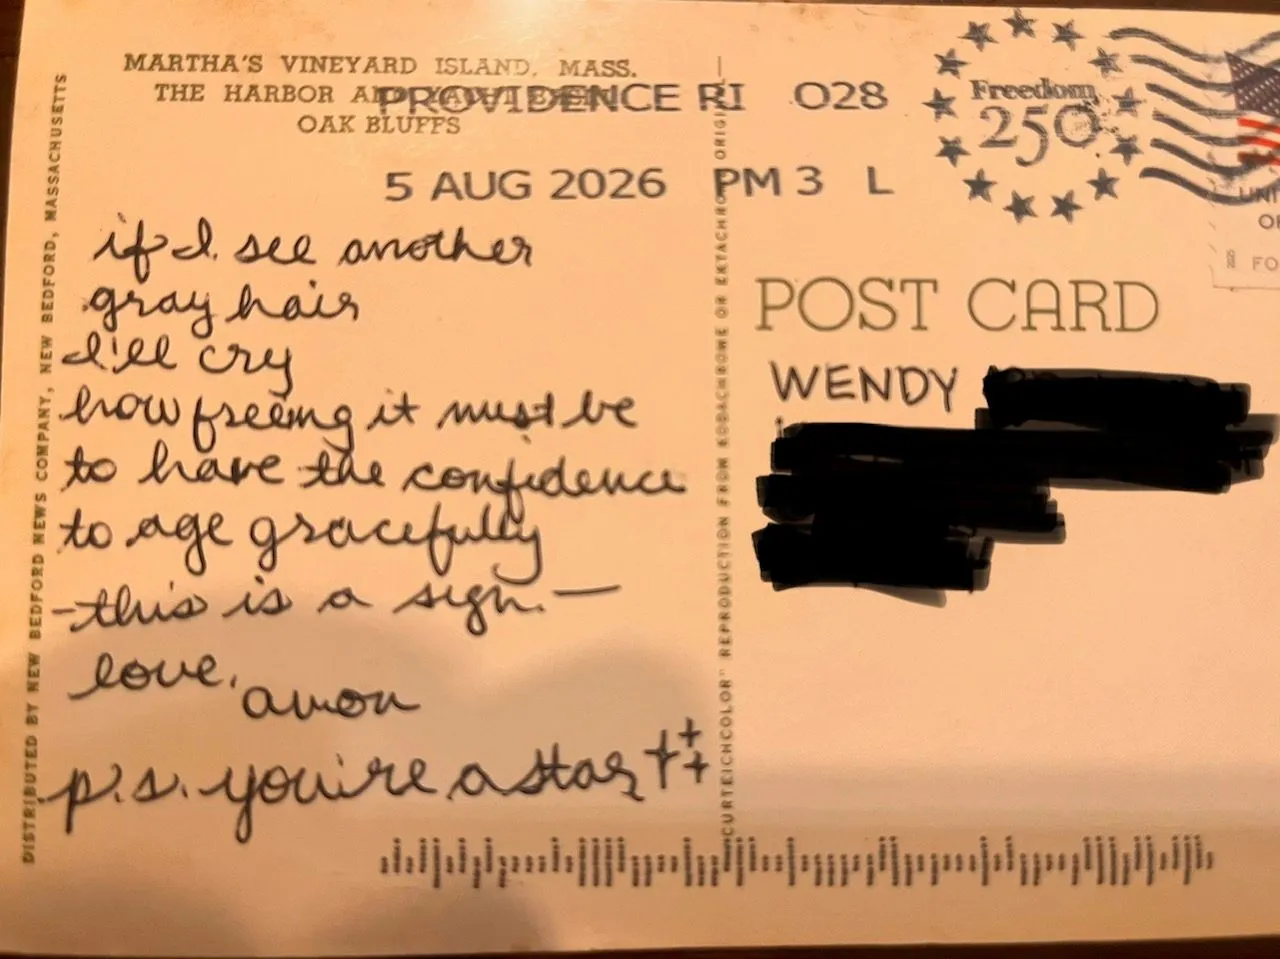 MARTHA'S VINEYARD ISLAND, MASS.
THE HARBOR AND
OAK BLUFFS
PROVIDENCE RI 028
5 AUG 2026 PM 3 L
Freedom
250
if I see another
gray hair
I'll cry
how freeing it must be
to have the confidence
to age gracefully
-this is a sign.—
love,
amon
p.s. you're a star
POST CARD
WENDY
DISTRIBUTED BY NEW BEDFORD NEWS COMPANY, NEW BEDFORD, MASSACHUSETTS
CURTEICHCOLOR" REPRODUCTION FROM KODACHROME OR EKTACHROME